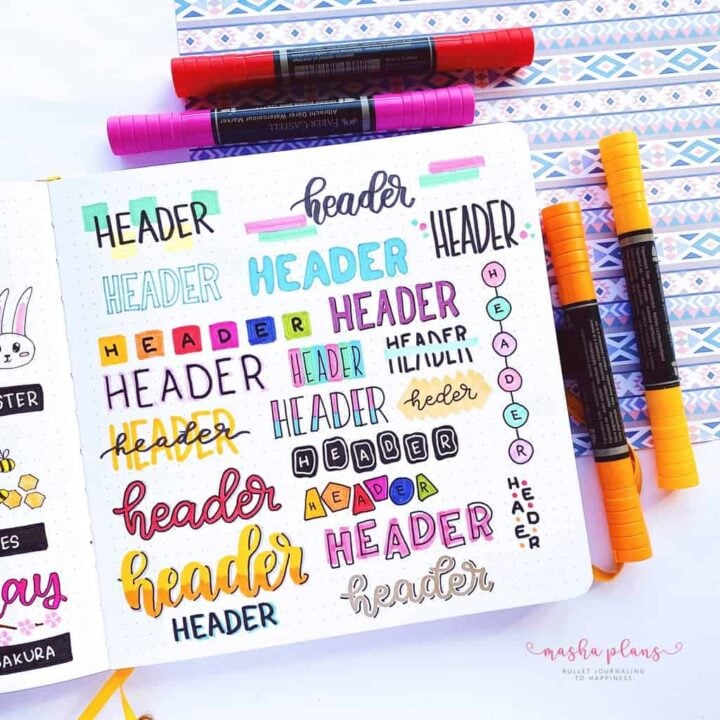 FABER-CASTELL
Albrecht Dürer Watercolour Marker
STER
ES
ay
AKURA
HEADER
header
HEADER
HEADER
HEADER
HEADER
HEADER
HEADER
HEADER
HEADER
HEADER
HEADER
HEADER
heder
HEADER
header
HEADER
header
HEADER
HEADER
HEADER
header
header
HEADER
masha plans
BULLET JOURNALING
TO HAPPINESS